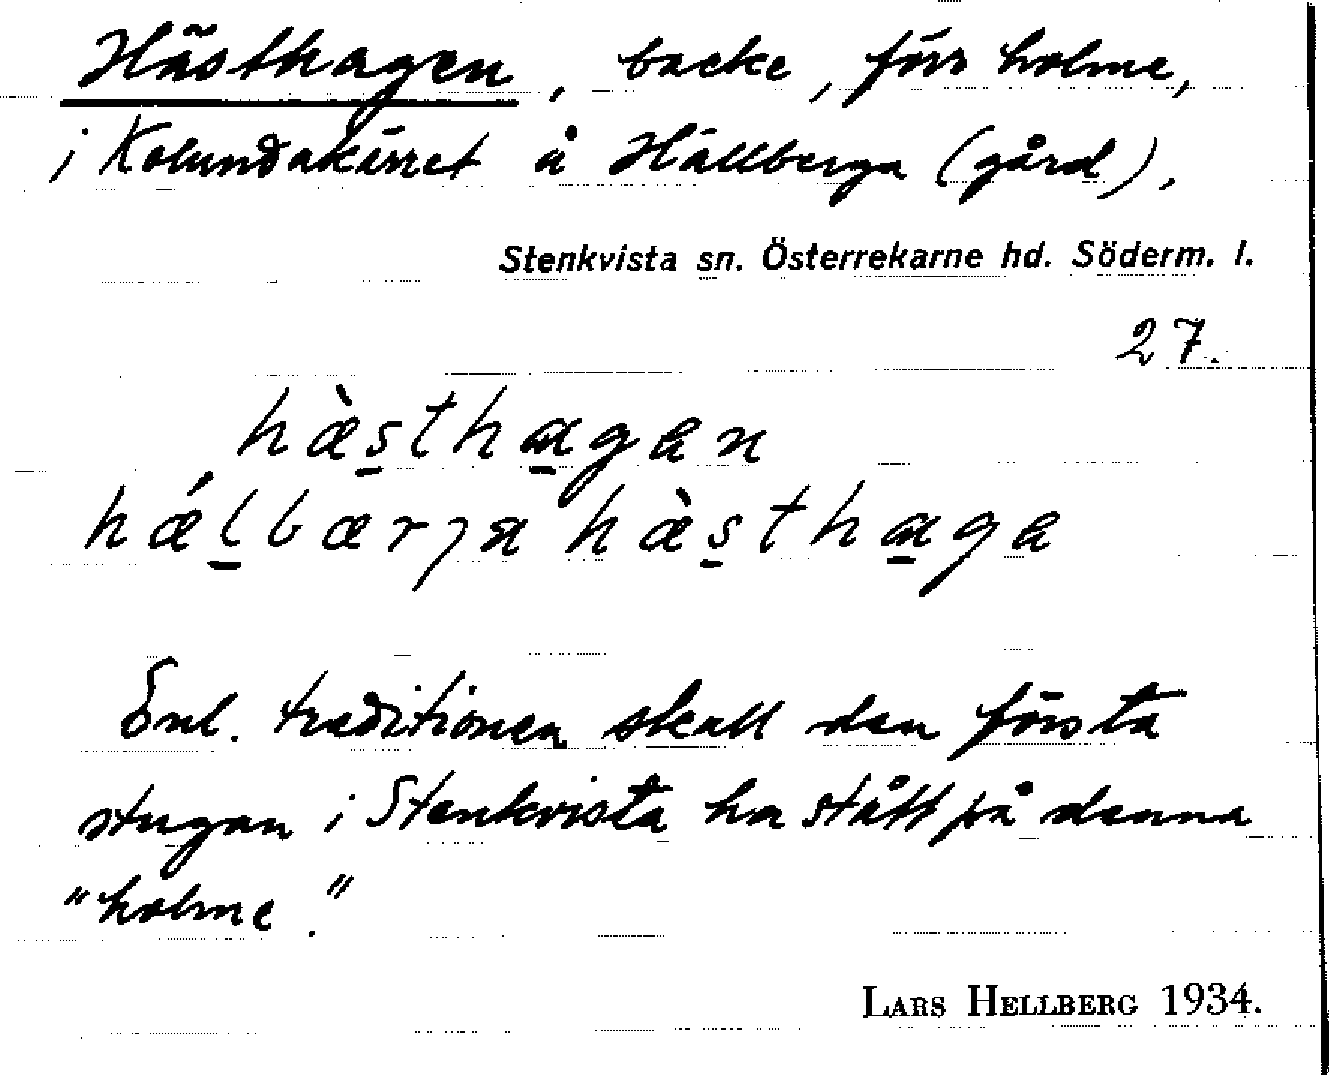 Hästhagen, backe, förr holme,
i Kolundakärret å Hällberga (gård),
Stenkvista sn. Österrekarne hd. Söderm. l.
27.
hæ̀s̲tha̲gan
hǽl̲bærȷa hæ̀s̲tha̲ga
Enl. traditionen skall den första
stugan i Stenkvista ha stått på denna
"holme."
LARS HELLBERG 1934.